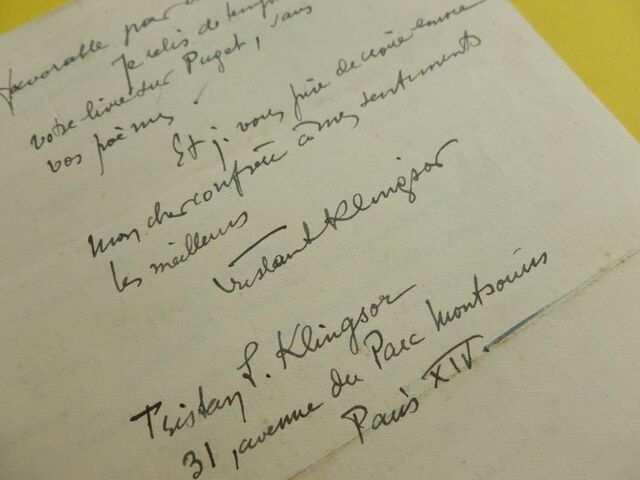 favorable par
Je relis de temps
votre livre sur Puget, sans
vos poèmes.
Et je vous prie de croire encore
mon cher confrère à mes sentiments
les meilleurs
Tristan Klingsor
Tristan L. Klingsor
31, avenue du Parc Montsouris
Paris XIV.